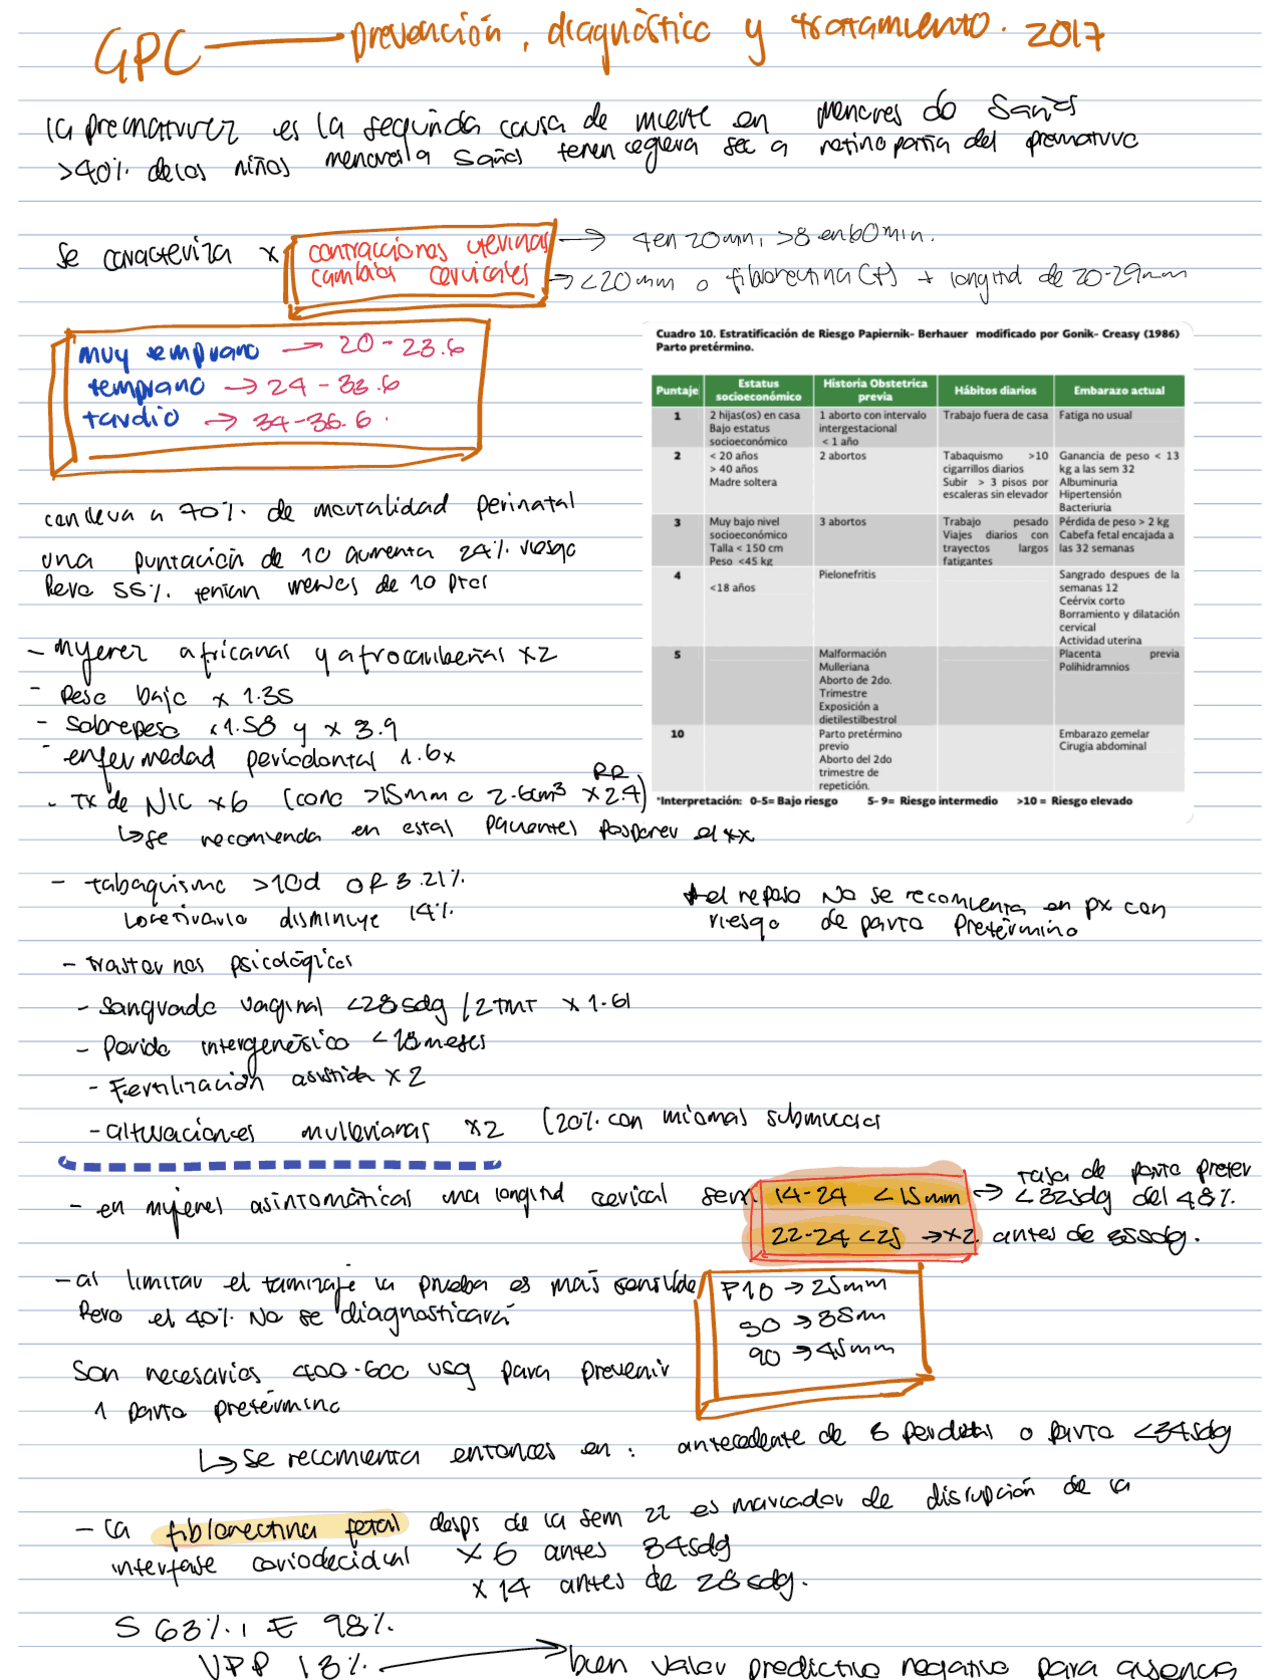 GPC — prevención, diagnóstico y tratamiento. 2017
la prematurez es la segunda causa de muerte en menores de 5 años
>40% de los niños menores a 5 años tienen ceguera sec a retinopatía del prematuro
Se caracteriza x
contracciones uterinas → 4 en 20 min, >8 en 60 min.
cambios cervicales → <20mm o fibronectina (+) + longitud de 20-29mm
muy temprano → 20 - 23.6
temprano → 24 - 33.6
tardío → 34-36.6.
Cuadro 10. Estratificación de Riesgo Papiernik- Berhauer modificado por Gonik- Creasy (1986)
Parto pretérmino.
Puntaje | Estatus socioeconómico | Historia Obstetrica previa | Hábitos diarios | Embarazo actual
1 | 2 hijas(os) en casa Bajo estatus socioeconómico | 1 aborto con intervalo intergestacional < 1 año | Trabajo fuera de casa | Fatiga no usual
2 | < 20 años > 40 años Madre soltera | 2 abortos | Tabaquismo >10 cigarrillos diarios Subir > 3 pisos por escaleras sin elevador | Ganancia de peso < 13 kg a las sem 32 Albuminuria Hipertensión Bacteriuria
3 | Muy bajo nivel socioeconómico Talla < 150 cm Peso <45 kg | 3 abortos | Trabajo pesado Viajes diarios con trayectos largos fatigantes | Pérdida de peso > 2 kg Cabefa fetal encajada a las 32 semanas
4 | <18 años | Pielonefritis | | Sangrado despues de la semanas 12 Ceérvix corto Borramiento y dilatación cervical Actividad uterina
5 | | Malformación Mulleriana Aborto de 2do. Trimestre Exposición a dietilestilbestrol | | Placenta previa Polihidramnios
10 | | Parto pretérmino previo Aborto del 2do trimestre de repetición. | | Embarazo gemelar Cirugia abdominal
*Interpretación: 0-5= Bajo riesgo 5- 9= Riesgo intermedio >10 = Riesgo elevado
conlleva a 70% de mortalidad perinatal
una puntación de 10 aumenta 24% riesgo
Pero 55% tenían menos de 10 ptos
- mujeres africanas y afrocaribeñas x2
- Peso bajo x 1.35
- Sobrepeso x1.58 y x 3.9
- enfermedad periodontal 1.6x
- Tx de NIC x6 (cono >15mm o 2.6cm³ RR x2.4)
↳ se recomienda en estas pacientes posponer el tx
- tabaquismo >10d OR 3.21%
disminuye 14%
*el reposo No se recomienta en px con
riesgo de parto Pretérmino
- trastornos psicológicos
- Sangrado vaginal <28sdg / 2TMT x 1.61
- Perido intergenésico <18meses
- Fertilización asistida x2
- alteraciones mullerianas x2 (20% con miomas submucosos
- en mujeres asintomáticas una longitud cervical sem 14-24 <15mm → tasa de parto preter <32sdg del 48%.
22-24 <25 → x2. antes de 35sdg.
- al limitar el tamizaje la prueba es más sensible
Pero el 40% No se diagnosticará
P10 → 25mm
50 → 35mm
90 → 45mm
Son necesarios 400-600 usg para prevenir
1 parto pretérmino
↳ Se recomienta entonces en: antecedente de 3 perdidas o parto <34sdg
- la fibronectina fetal desps de la sem 22 es marcador de disrupción de la
interfase coriodecidual x 6 antes 34sdg
x 14 antes de 28sdg.
S 63%, E 98%.
VPP 13% → buen valor predictivo negativo para ausencia